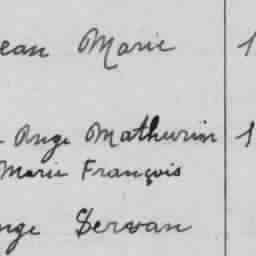 ean Marie 1
Ange Mathurin 1
Marie François
nge Servan